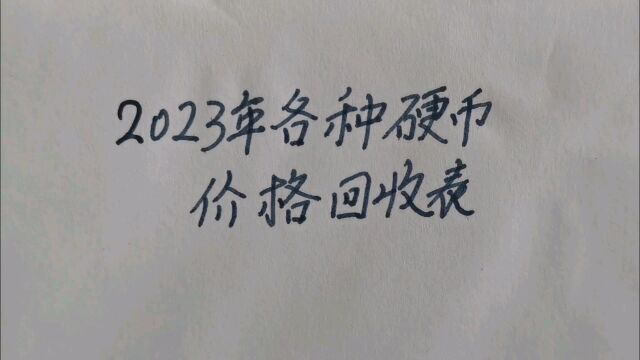 2023年各种硬币
价格回收表